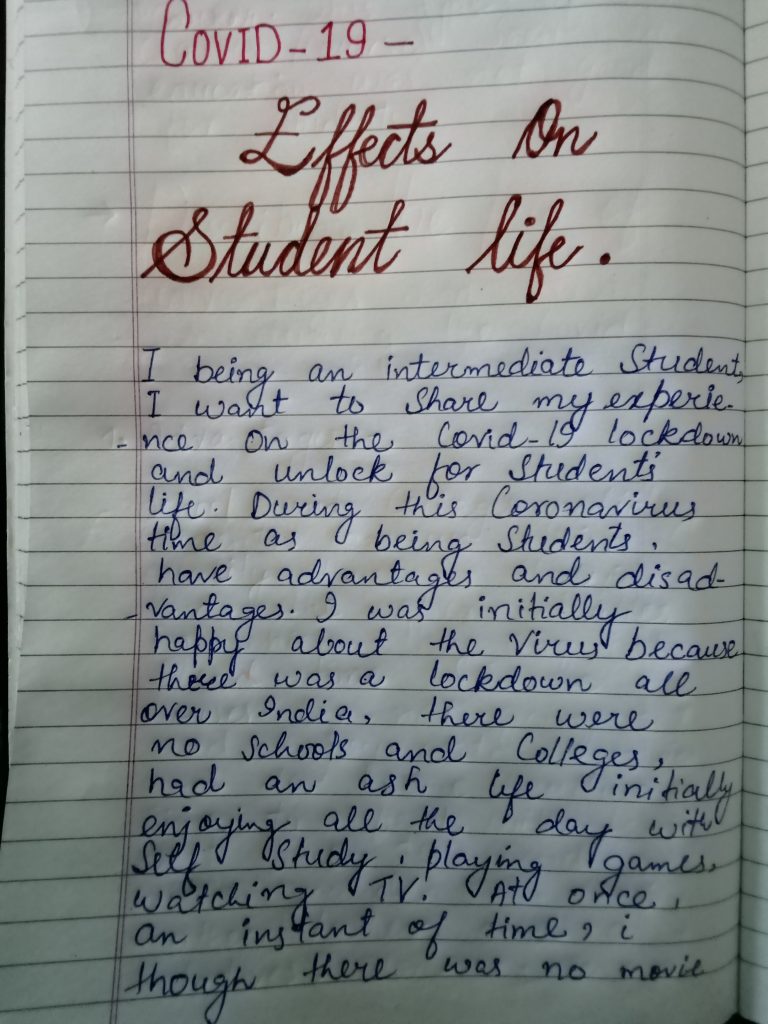 COVID-19 -
Effects On
Student life.
I being an intermediate Student,
I want to Share my experie-
-nce on the Covid-19 lockdown
and unlock for Students'
life. During this Coronavirus
time as being Students.
have advantages and disad-
-vantages. I was initially
happy about the Virus because
there was a lockdown all
over India, there were
no Schools and Colleges,
had an ash life initially
enjoying all the day with
Self Study, playing games,
watching TV. At once,
an instant of time, i
though there was no movie